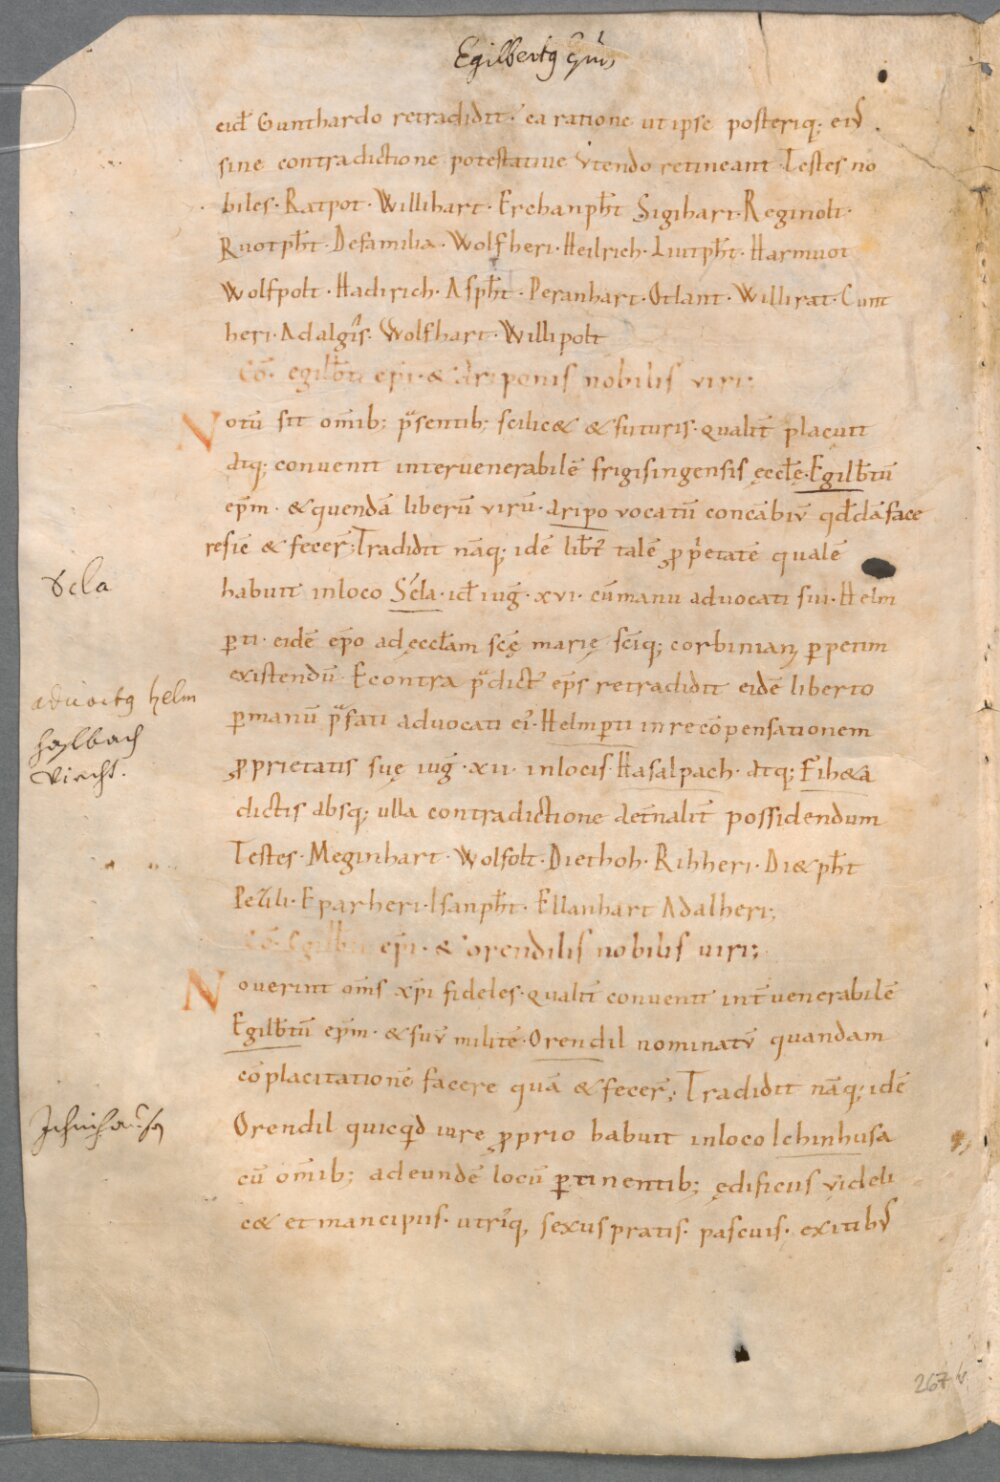 Egilbertꝰ
eid̄ Gunthardo retradidit· ea ratione ut ipse posteriq; eiꝰ
sine contradictione potestatiue utendo retineant· Testes no
biles· Ratpot· Willihart· Erchanpħt Sigihart· Reginolt·
Ruotpħt· De familia· Wolfheri· Heilrich· Liutpħt· Harmuot
Wolfpolt· Hadirich· Aspħt· Peranhart· Otlant· Willirat· Cunt
heri· Adalgis· Wolfhart· Willipolt
Cō· egilƀti ep̄i· & Ariponis nobilis viri;
Notū sit om̄ib; p̄sentib; scilic& & futuris· qualit̄ placuit
atq; conuenit inter uenerabilē frigisingensis ęccłę· Egilƀtū
ep̄m· & quendā liberū virū· aripo vocatū concābiū qđdā face
re sic & fecer̄; Tradidit nāq; idē liƀt talē ꝓprietatē qualē
habuit in loco Scla· id̄ iug̃· xvi· cū manu aduocati sui· Helm
ꝑti· eidē ep̄o ad ęccłam scę marię sciq; corbiniani ꝑpetim
existendū· Econtra p̄dict' ep̄s retradidit eidē liberto
ꝑ manū p̄fati aduocati ei· Helmꝑti in recōpensationem
ꝓprietatis suę iug̃· xii· in locis· Hasalpach· atq; Fiheta
dictis absq; ulla contradictione aet̄nalit̄ possidendum
Testes· Meginhart· Wolfolt· Diethoh· Rihheri· Di&pħt
Pezili· Eparheri· Isanpħt· Ellanhart Adalheri;
Cō· Egilƀti ep̄i· & orendilis nobilis uiri;
Nouerint om̄s xp̄i fideles· qualit̄ conuenit int̄ uenerabilē
Egilƀtū ep̄m· & suū militē· Orendil nominatū quandam
cōplacitationē facere quā & fecer̄; Tradidit nāq; idē
Orendil quicqđ iure ꝓprio habuit in loco Ichinhusa
cū om̄ib; ad eundē locū ꝑtinentib; ędificiis videli
c& et mancipiis· utriq, sexus pratis· pascuis· exitibꝰ
Scla
aduoctꝰ helm
haslbach
viecht·
267 v